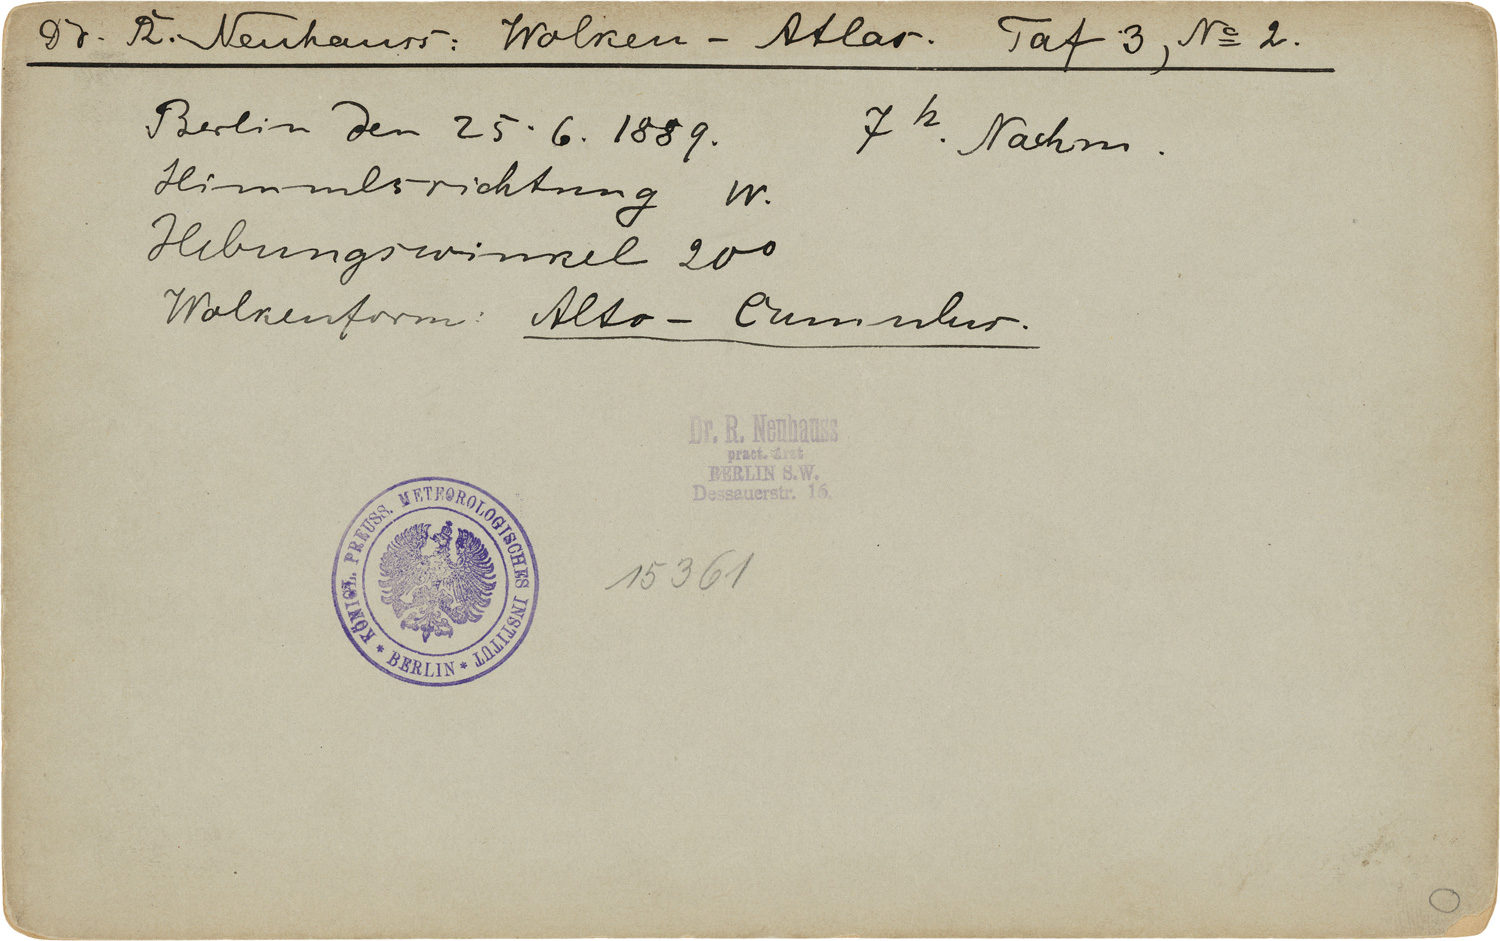 Dr. R. Neuhauss: Wolken - Atlas. Taf 3, No 2.
Berlin den 25. 6. 1889. 7 h. Nachm.
Himmelsrichtung W.
Hebungswinkel 20°
Wolkenform: Alto - Cumulus.
Dr. R. Neuhauss
pract. Arzt
BERLIN S.W.
Dessauerstr. 16.
KÖNIGL. PREUSS. METEOROLOGISCHES INSTITUT
* BERLIN *
15361